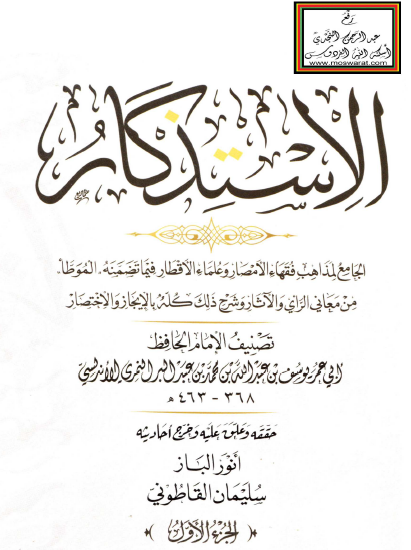 رفع
عبد الرحمن النجدي
أسكنه الله الفردوس
www.moswarat.com
الاستذكار
الجامع لمذاهب فقهاء الأمصار وعلماء الأقطار فيما تضمنه «الموطأ»
من معاني الرأي والآثار وشرح ذلك كله بالإيجاز والاختصار
تصنيف الإمام الحافظ
أبي عمر يوسف بن عبد الله بن محمد بن عبد البر النمري الأندلسي
٣٦٨ - ٤٦٣ هـ
حققه وعلق عليه وخرج أحاديثه
أنور الباز
سليمان القاطوني
الجزء الأول